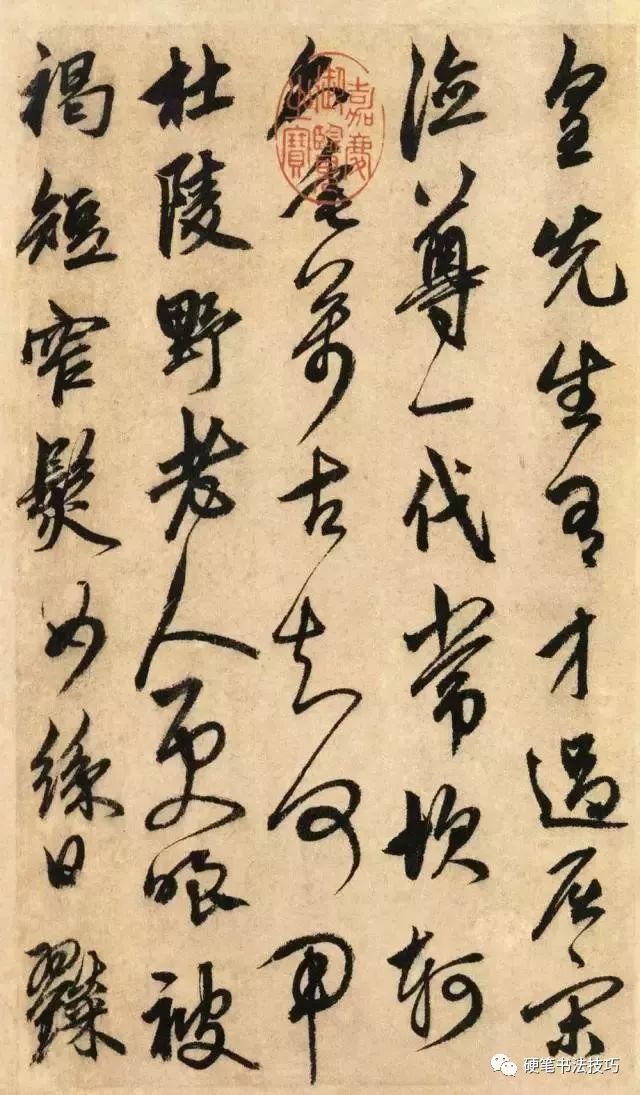 皇先生有才過屈宋
德尊一代常坎軻
名垂萬古知何用
杜陵野老人更嗤被
褐短窄鬢如絲日糴
嘉慶御覽之寶
硬笔书法技巧